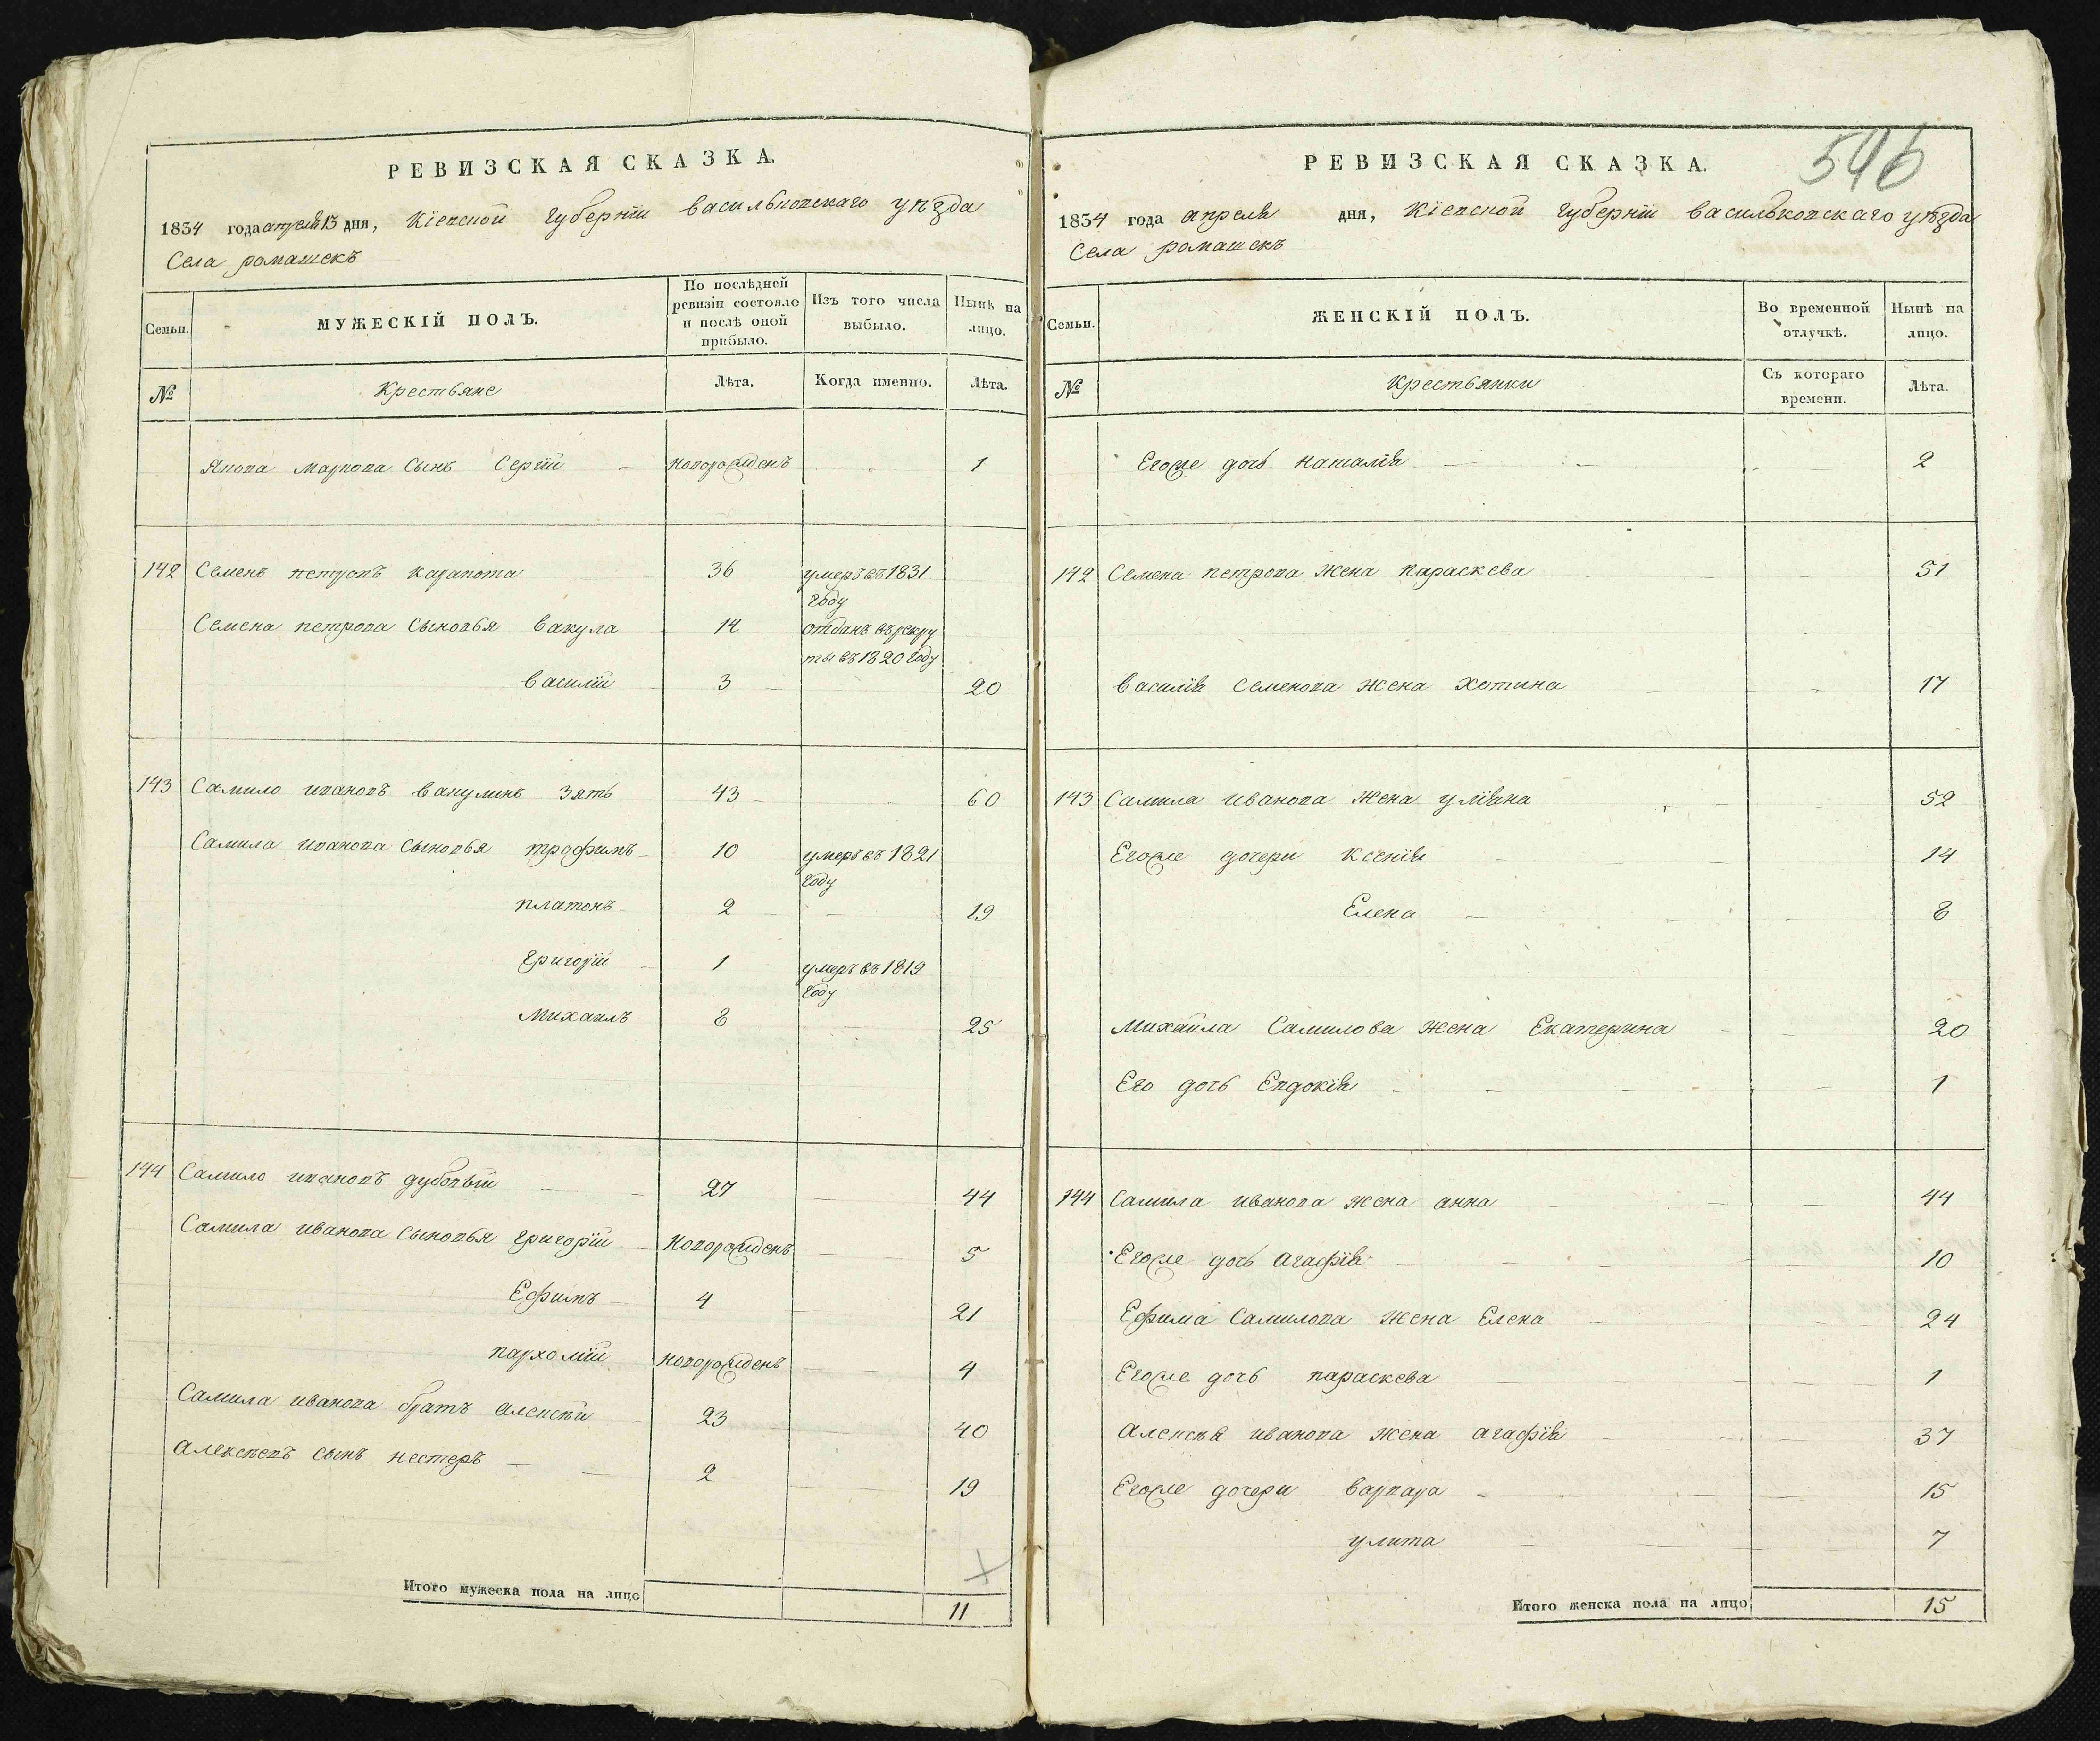 РЕВИЗСКАЯ СКАЗКА.
1834 года апреля 13 дня, Кіевской Губерніи васильковскаго уѣзда
Села ромашекъ
Семьи. МУЖЕСКІЙ ПОЛЪ. По послѣдней ревизіи состояло и послѣ оной прибыло. Изъ того числа выбыло. Нынѣ на лицо.
№ Крестьяне Лѣта. Когда именно. Лѣта.
Якова маркова сынъ Сергій новорожденъ 1
142 Семенъ петровъ каравота 36 умеръ въ 1831
году
Семена петрова сыновья вакула 14 отданъ въ рекру
ты въ 1820 году
василій 3 20
143 Самило ивановъ вакулинъ зять 43 60
Самила иванова сыновья трофимъ 10 умеръ въ 1821
году
платонъ 2 19
григорій 1 умеръ въ 1819
году
михаилъ 8 25
144 Самило ивановъ дубовый 27 44
Самила иванова сыновья григорій новорожденъ 5
Ефимъ 4 21
пархомій новорожденъ 4
Самила иванова братъ алексѣй 23 40
алексѣевъ сынъ нестеръ 2 19
Итого мужеска пола на лицо 11
546
РЕВИЗСКАЯ СКАЗКА.
1834 года апреля дня, Кіевской Губерніи васильковскаго уѣзда
Села ромашекъ
Семьи. ЖЕНСКІЙ ПОЛЪ. Во временной отлучкѣ. Нынѣ на лицо.
№ Крестьянки Съ котораго времени. Лѣта.
Егоже дочь наталія 2
142 Семена петрова жена параскева 51
василія семенова жена хотина 17
143 Самила иванова жена уліяна 52
Егоже дочери ксенія 14
Елена 8
михайла Самилова жена Екатерина 20
Его дочь Евдокія 1
144 Самила иванова жена анна 44
Егоже дочь агафія 10
Ефима Самилова жена Елена 24
Егоже дочь параскева 1
алексѣя иванова жена агафія 37
Егоже дочери варвара 15
улита 7
Итого женска пола на лицо 15